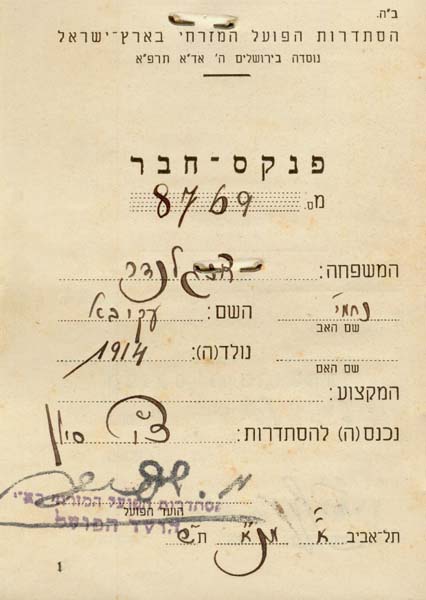 ב"ה.
הסתדרות הפועל המזרחי בארץ-ישראל
נוסדה בירושלים ה' אד"א תרפ"א
פנקס-חבר
מס. 8769
המשפחה:
השם: עקיבא נחמי'
שם האב
נולד(ה): 1914
שם האם
המקצוע:
נכנס(ה) להסתדרות:
הסתדרות הפועל המזרחי בא"י
הועד הפועל
הועד הפועל
תל-אביב א' ת"ש
1